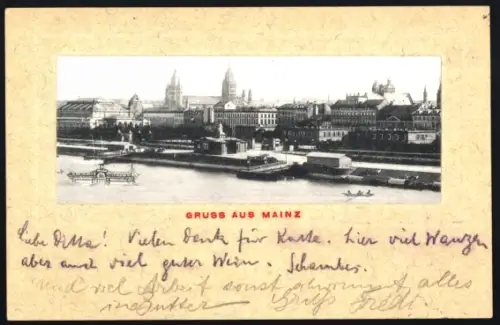 GRUSS AUS MAINZ
Liebe Ditta! Vielen Dank für Karte. Hier viel Wanzen
aber auch viel guter Wein.
Und viel Arbeit sonst alles
Gruß